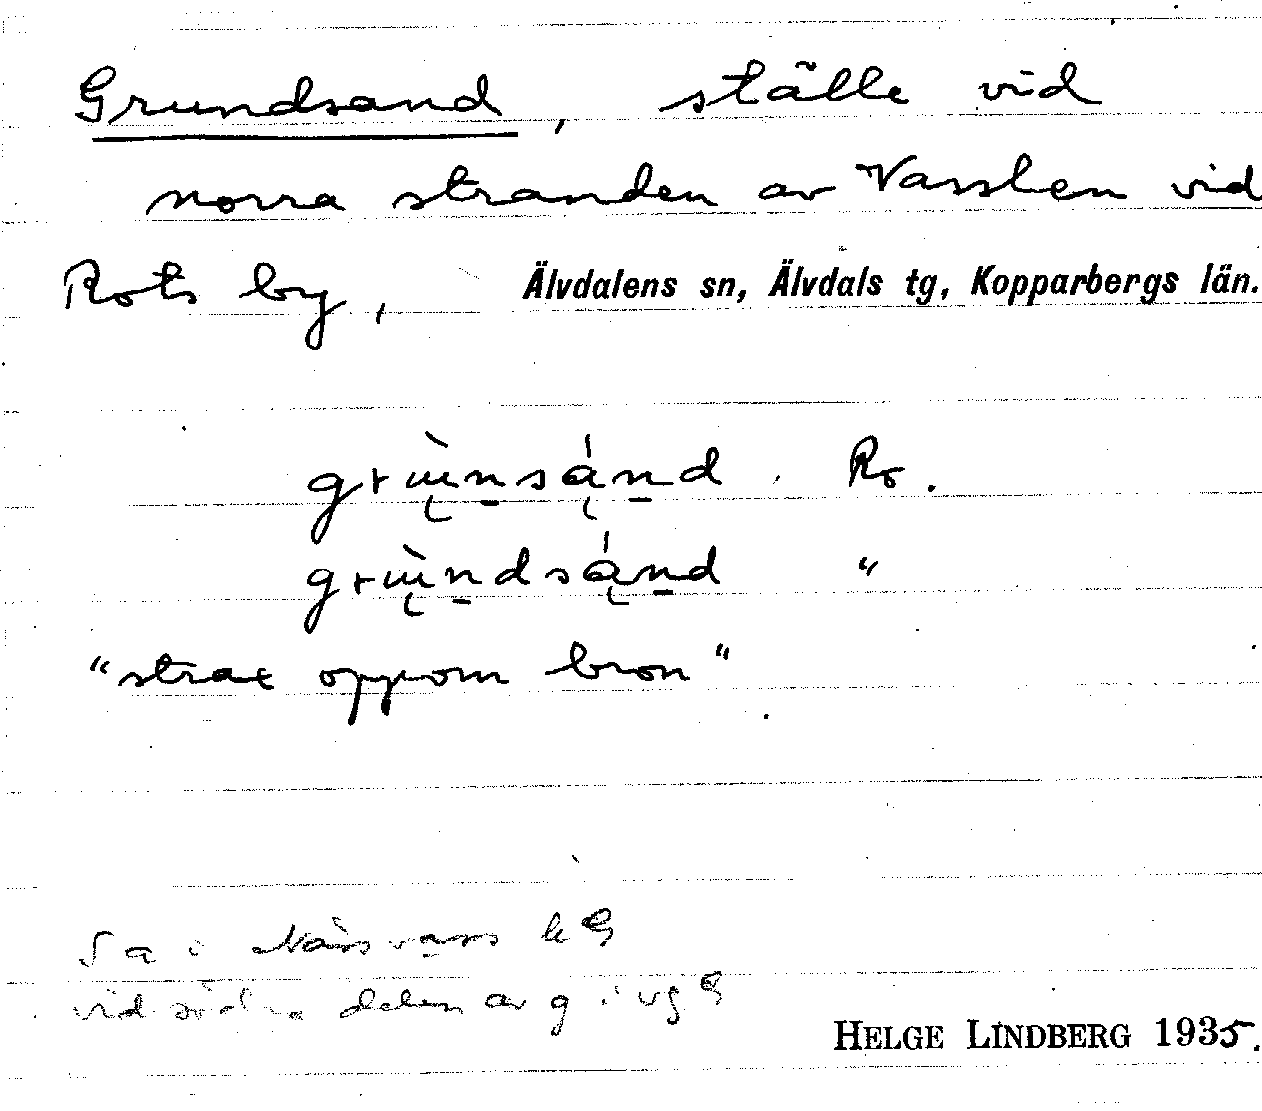 Grundsand, ställe vid
norra stranden av Vasslen vid
Rots by, Älvdalens sn, Älvdals tg, Kopparbergs län.
grùnsánd. Ro.
grùndsánd "
"strax oppom bron"
vid södra delen av g
HELGE LINDBERG 1935.